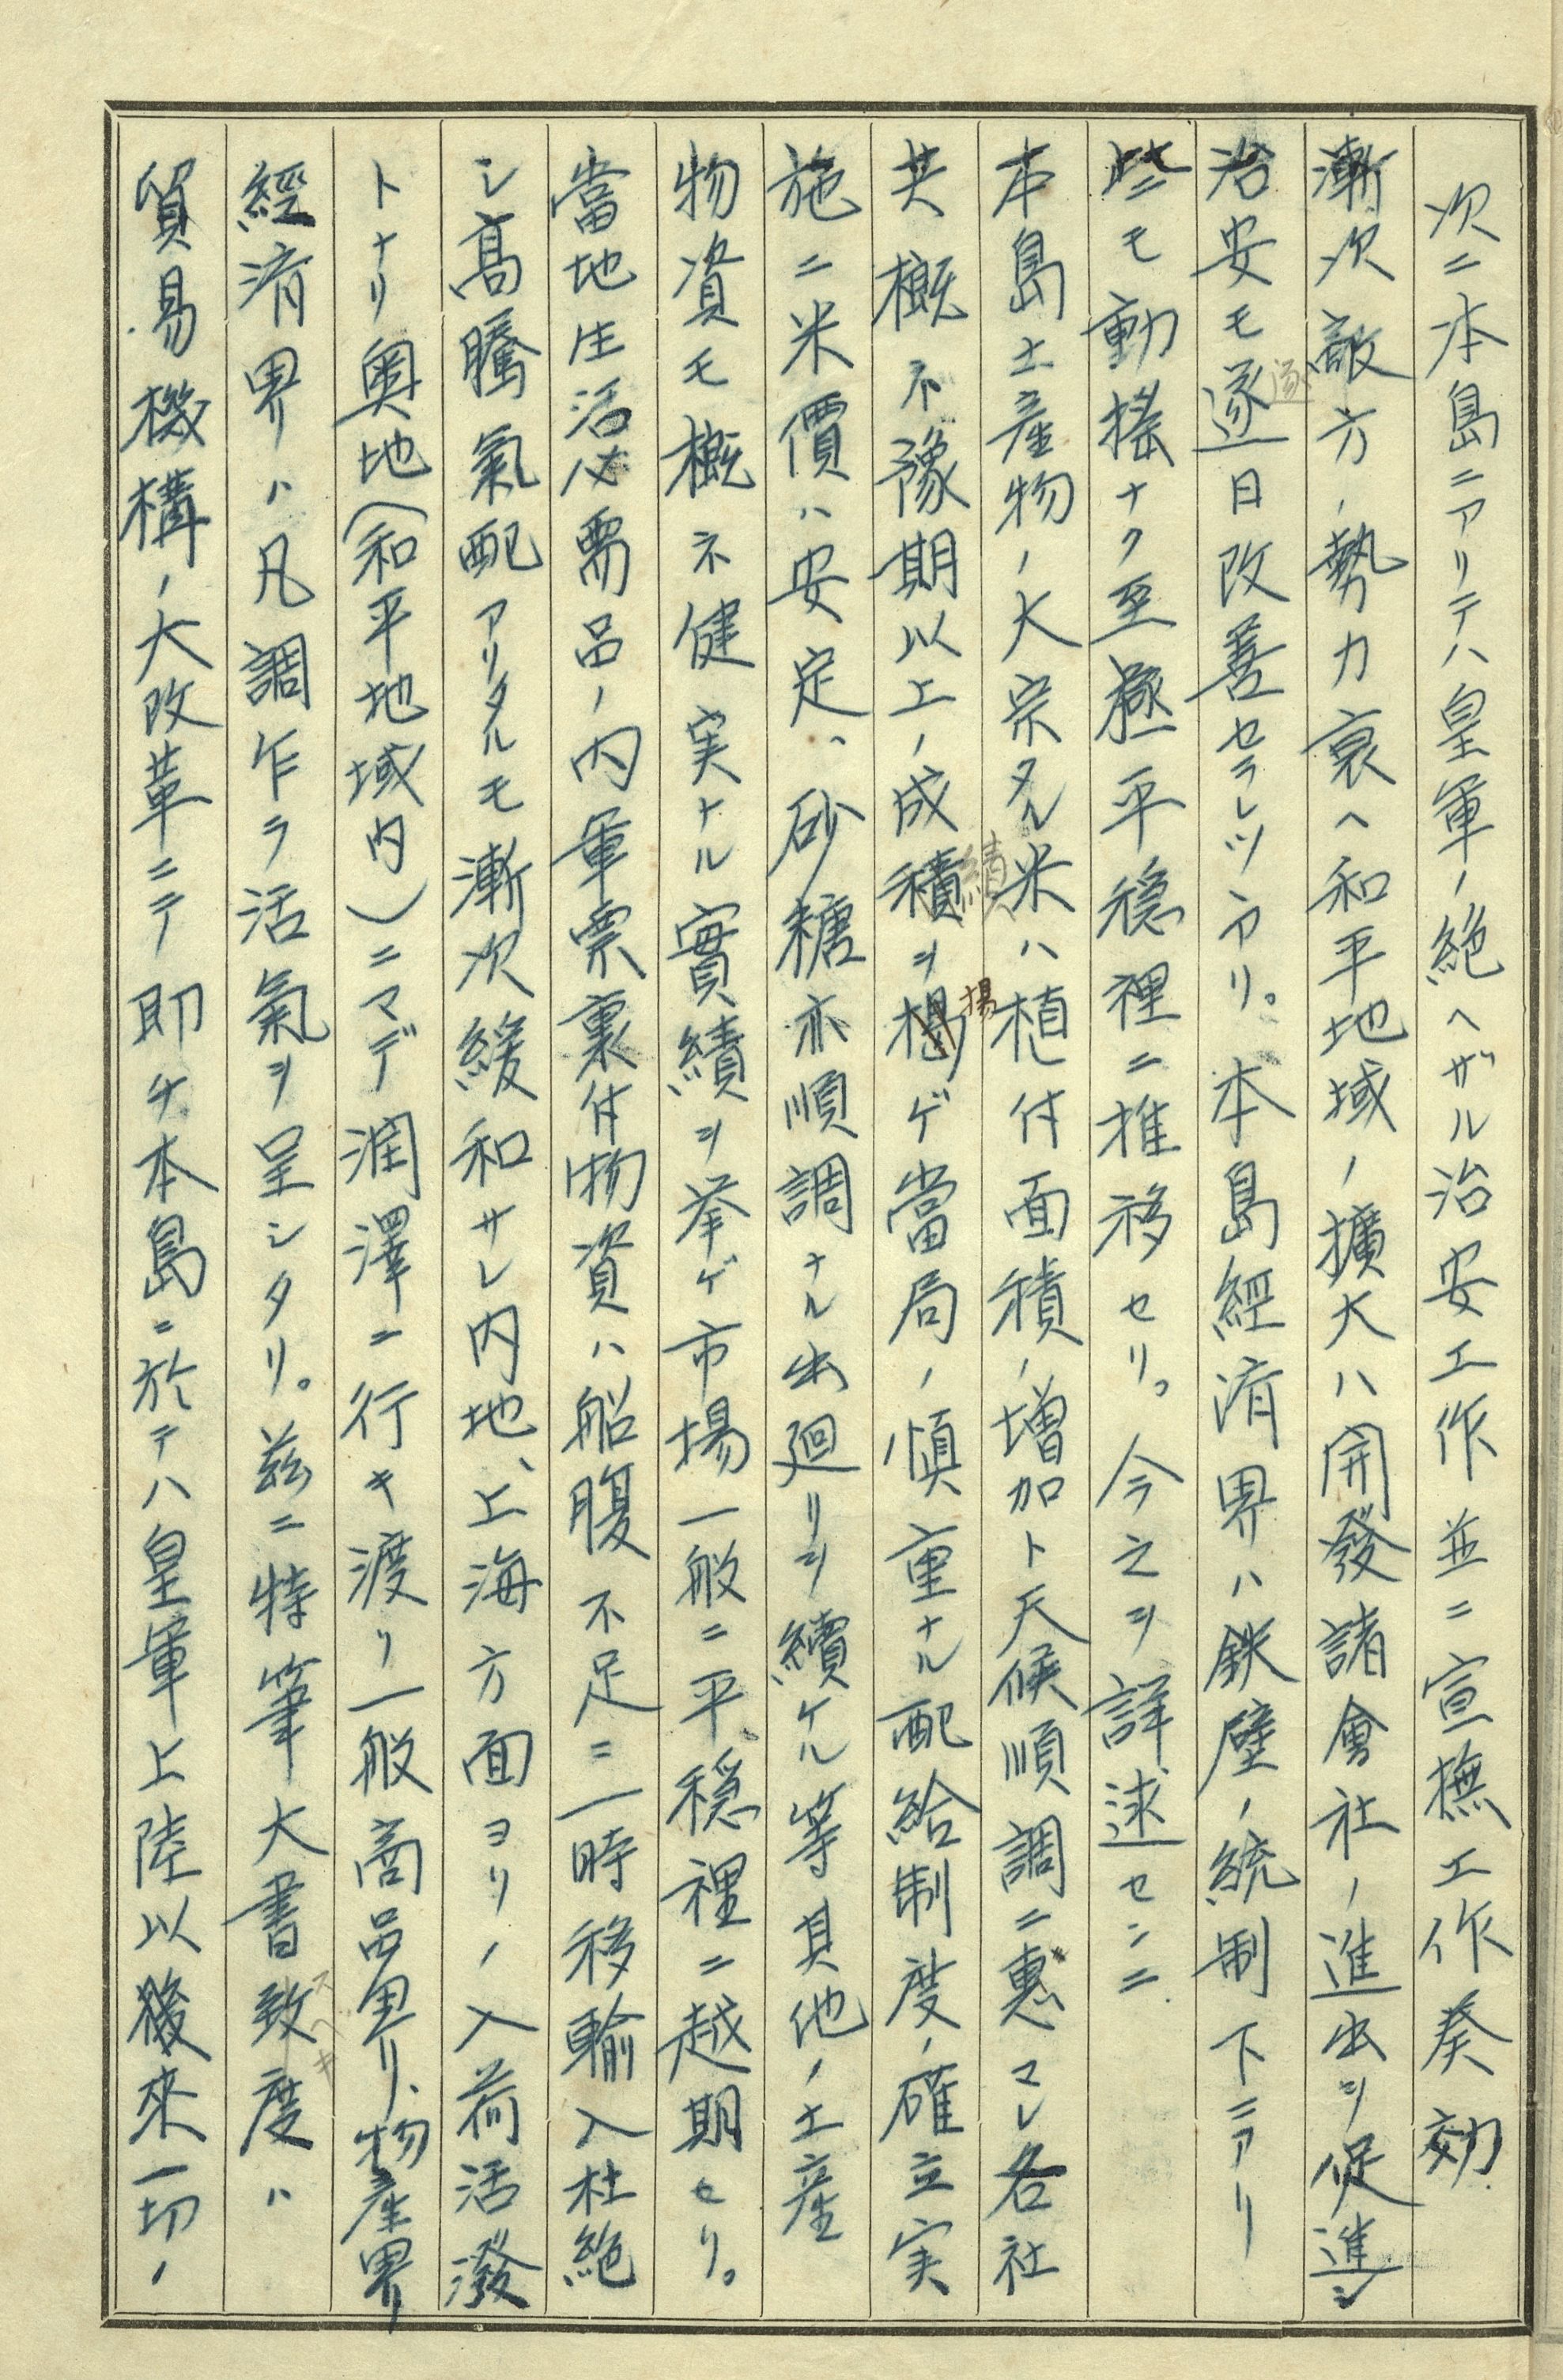 次ニ本島ニアリテハ皇軍ノ絶ヘザル治安工作並ニ宣撫工作奏効
漸次敵方ノ勢力衰ヘ和平地域ノ擴大ハ開發諸會社ノ進出ヲ促進シ
治安モ逐日改善セラレツヽアリ。本島經済界ハ鉄壁ノ統制下ニアリ
逐
些ニモ動搖ナク至極平穏裡ニ推移セリ。今之ヲ詳述センニ
本島土産物ノ大宗タル米ハ植付面積ノ増加ト天候順調ニ惠マレ各社
共概ネ豫期以上ノ成積ヲ楊ゲ當局ノ愼重ナル配給制度ノ確立実
績
揚
施ニ米價ハ安定、砂糖亦順調ナル出廻リヲ續ケル等其他ノ土産
物資モ概ネ健実ナル實績ヲ挙ゲ市場一般ニ平穏裡ニ越期セリ。
當地生活必需品ノ内軍票裏付物資ハ船腹不足ニ一時移輸入杜絶
シ高騰氣配アリタルモ漸次緩和サレ内地、上海方面ヨリノ入荷活潑
トナリ奥地(和平地域内)ニマデ潤澤ニ行キ渡リ一般商品界、物産界
經済界ハ凡調乍ラ活氣ヲ呈シタリ。茲ニ特筆大書致度ハ
スヘキ
貿易機構ノ大改革ニテ即チ本島ニ於テハ皇軍上陸以後來一切ノ